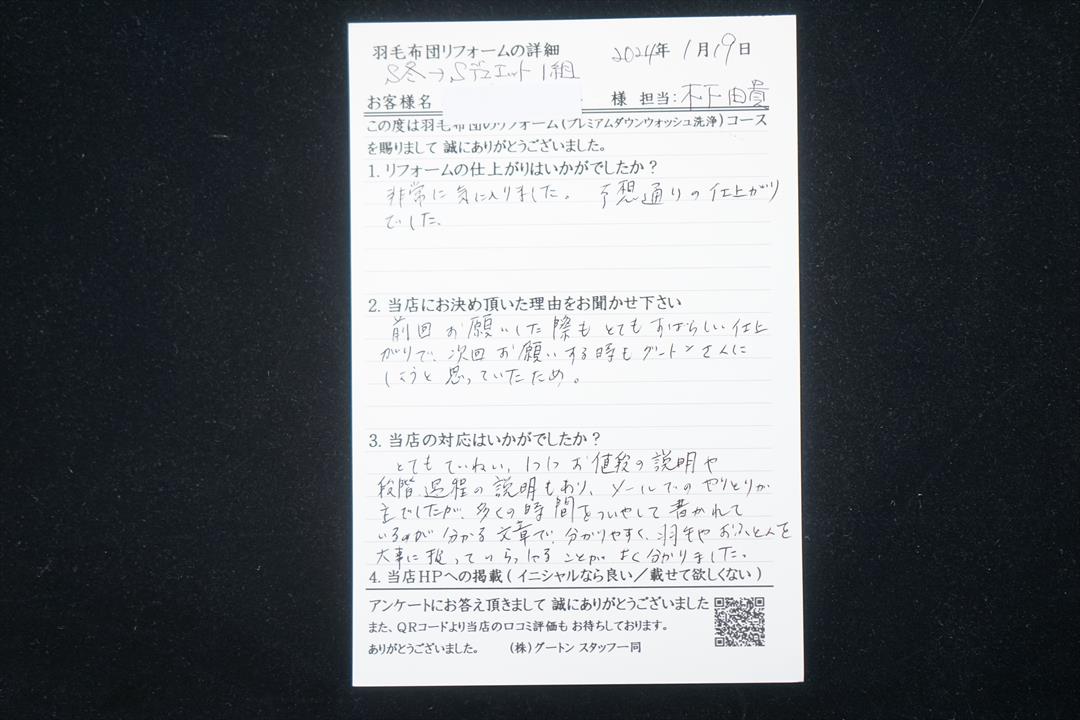 羽毛布団リフォームの詳細 2024年 1月19日
S冬→Sデュエット1組
お客様名 様 担当:木下由貴
この度は羽毛布団のリフォーム(プレミアムダウンウオッシュ洗浄)コース
を賜りまして 誠にありがとうございました。
1. リフォームの仕上がりはいかがでしたか?
非常に気に入りました。 予想通りの仕上がり
でした。
2. 当店にお決め頂いた理由をお聞かせ下さい
前回お願いした際もとてもすばらしい仕上
がりで、次回お願いする時もグートンさんに
しようと思っていたため。
3. 当店の対応はいかがでしたか?
とてもていねい、1つ1つお値段の説明や
段階、過程の説明もあり、メールでのやりとりが
主でしたが、多くの時間をついやして書かれて
いるのが分かる文章で、分かりやすく、羽毛やおふとんを
大事に扱っていらっしゃることが、よく分かりました。
4. 当店HPへの掲載(イニシャルなら良い/載せて欲しくない)
アンケートにお答え頂きまして 誠にありがとうございました
また、QRコードより当店の口コミ評価も お待ちしております。
ありがとうございました。 (株)グートン スタッフ一同